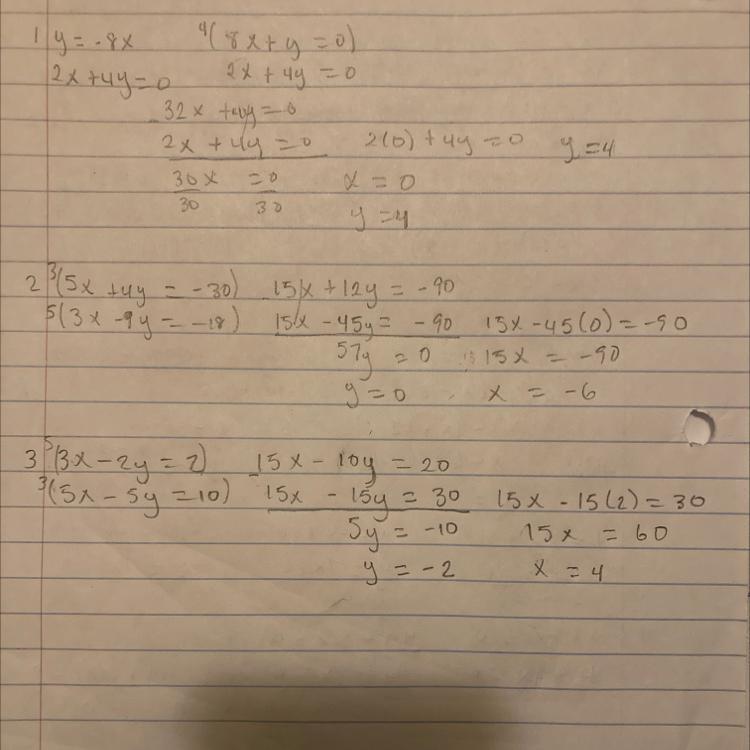 1 y = -8x 4(8x + y = 0)
2x + 4y = 0 2x + 4y = 0
32x + 4y = 0
2x + 4y = 0 2(0) + 4y = 0 y = 4
30x = 0 x = 0
30 30 y = 4
2 3(5x + 4y = -30) 15x + 12y = -90
5(3x - 9y = -18) 15x - 45y = -90 15x - 45(0) = -90
57y = 0 15x = -90
y = 0 x = -6
3 5(3x - 2y = 2) 15x - 10y = 20
3(5x - 5y = 10) 15x - 15y = 30 15x - 15(2) = 30
5y = -10 15x = 60
y = -2 x = 4